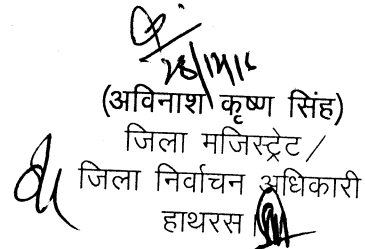 (अविनाश कृष्ण सिंह)
जिला मजिस्ट्रेट /
जिला निर्वाचन अधिकारी
हाथरस ।